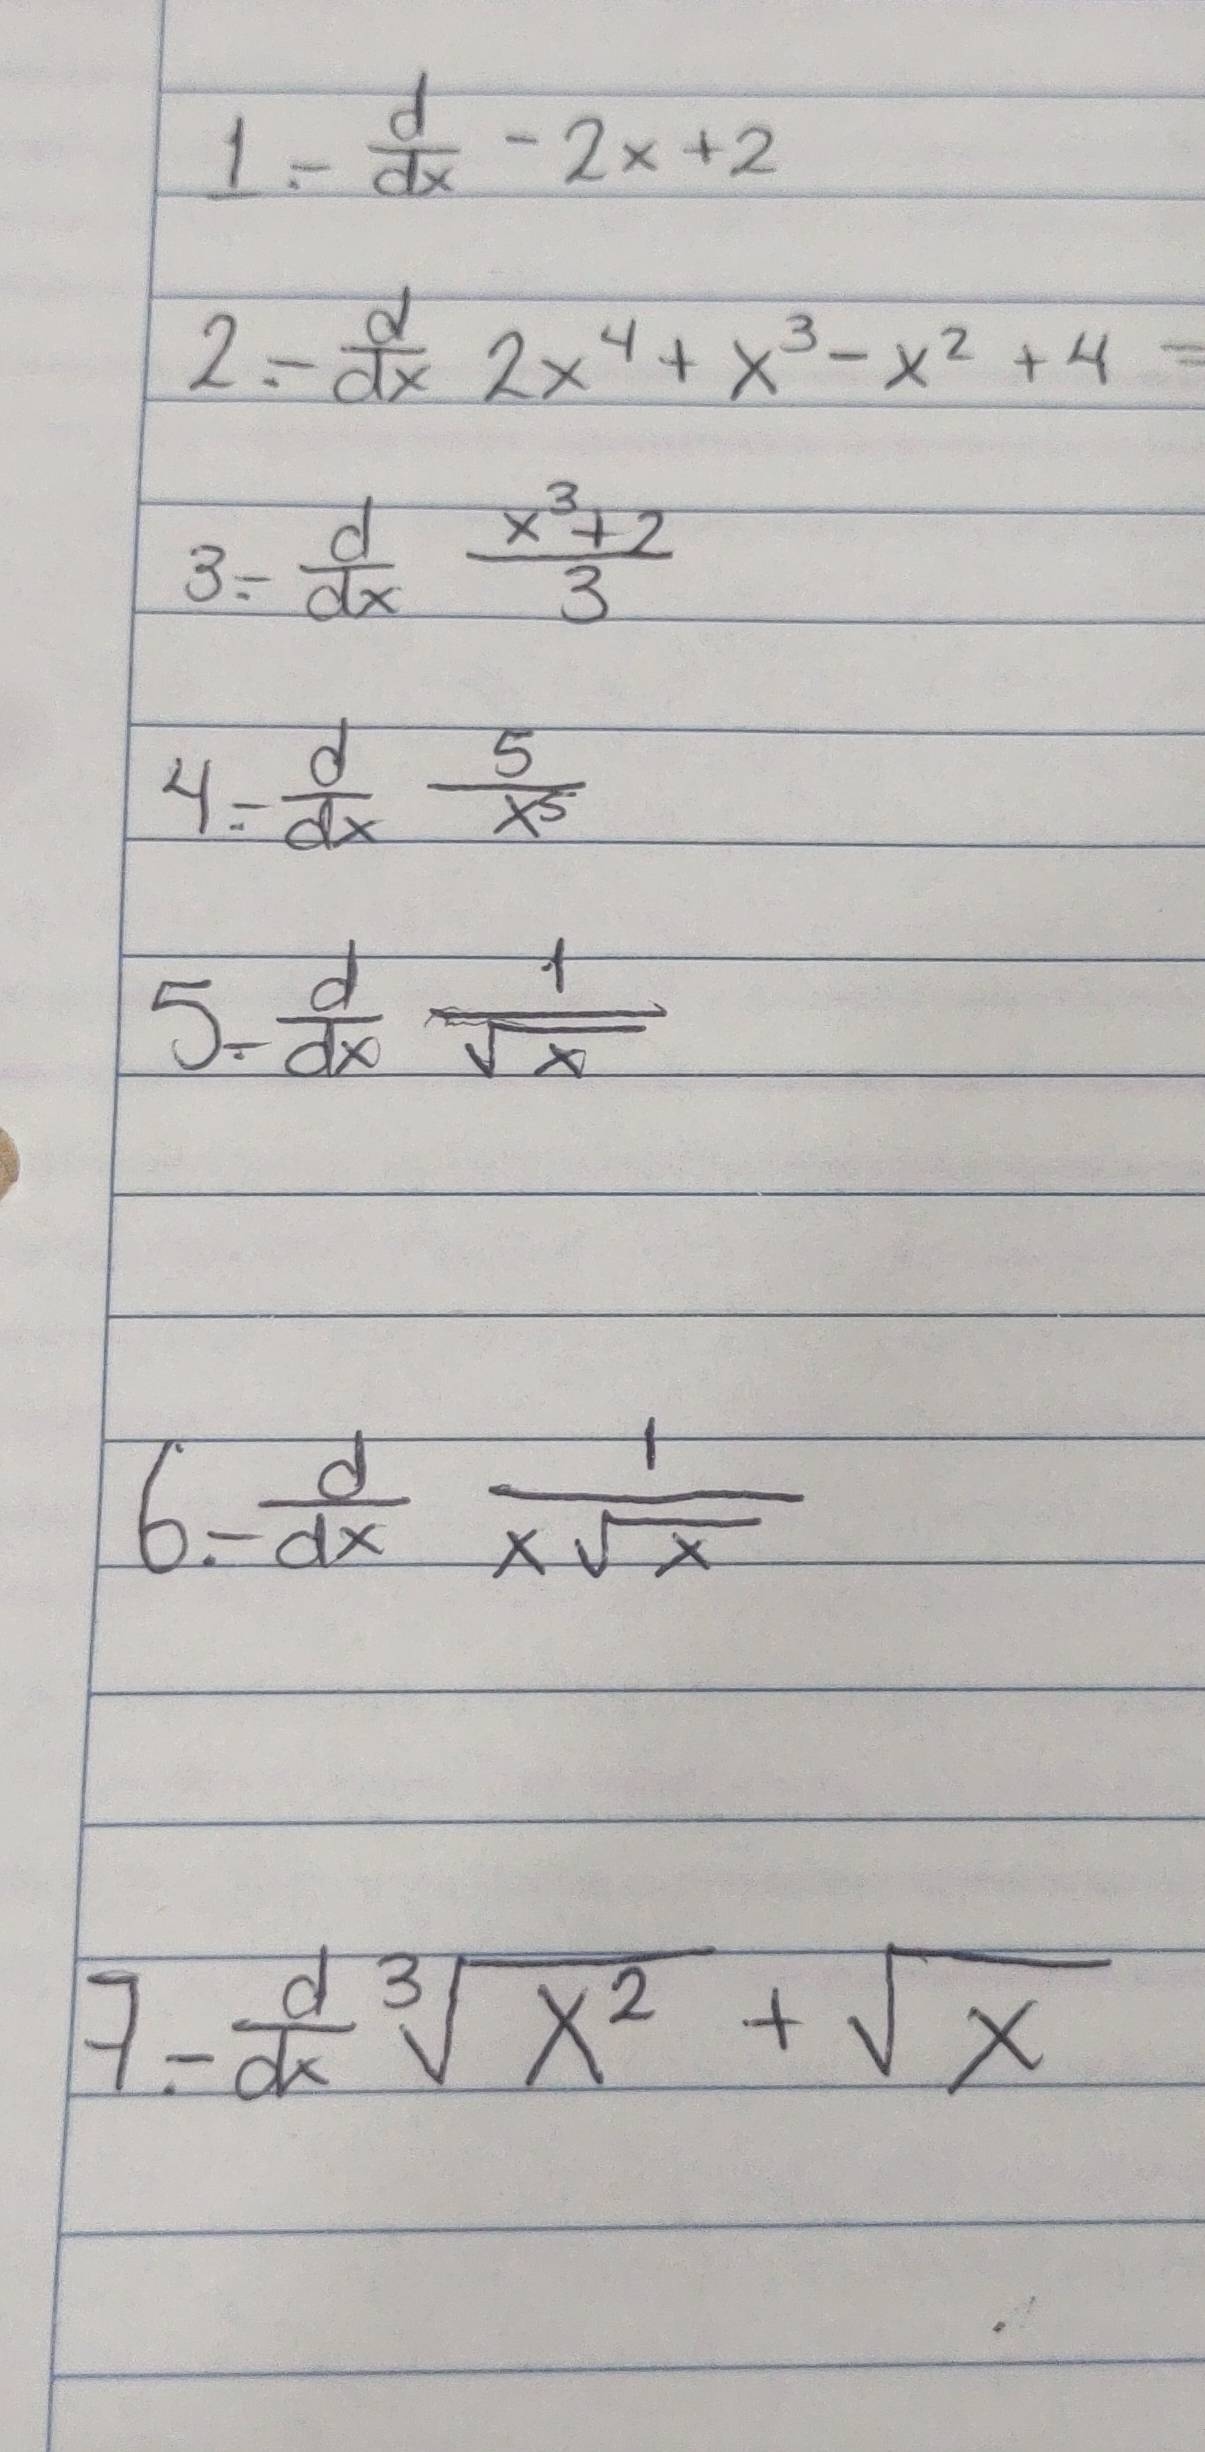 1.- d/dx - 2x + 2
2.- d/dx 2x⁴ + x³ - x² + 4 =
3.- d/dx (x³+2)/3
4.- d/dx 5/x⁵
5.- d/dx 1/√x
6.- d/dx 1/(x√x)
7.- d/dx ³√x² + √x